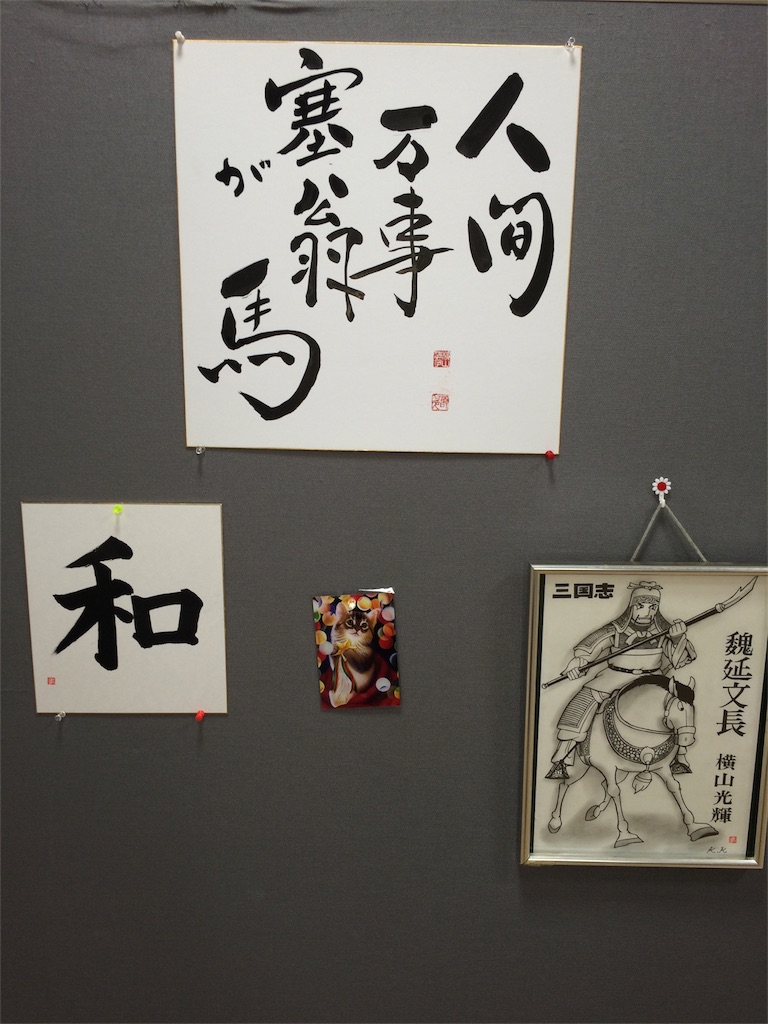 人間
万事
塞翁
が
馬
和
三国志
魏延文長
横山光輝